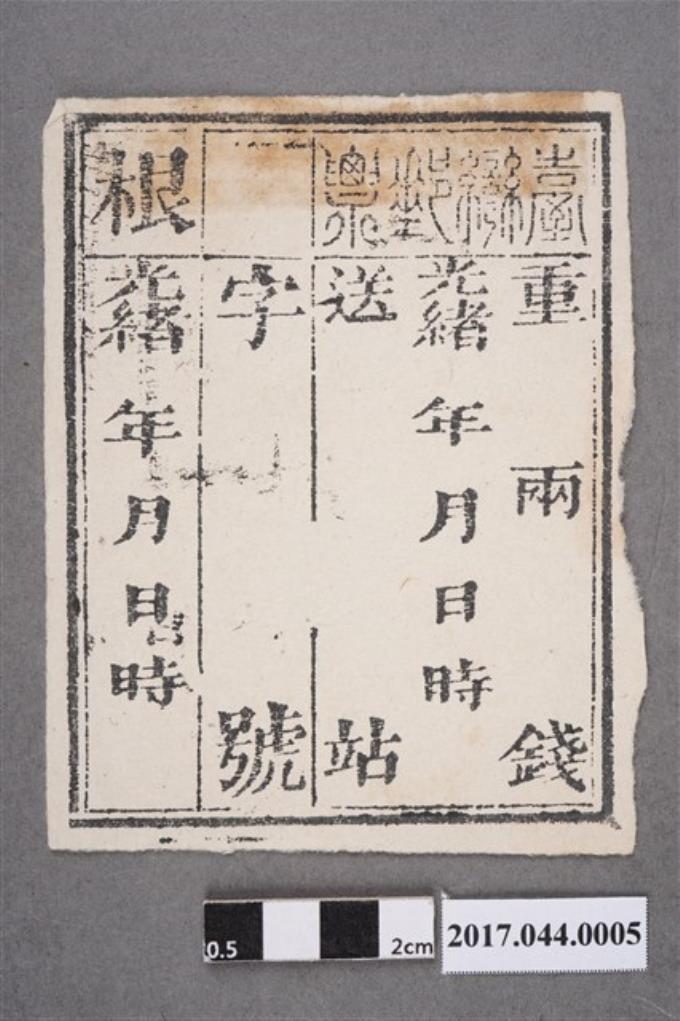 臺灣郵票
重 兩 錢
光緒 年 月 日 時
送 站
字 號
根
光緒 年 月 日 時
0.5 2cm
2017.044.0005